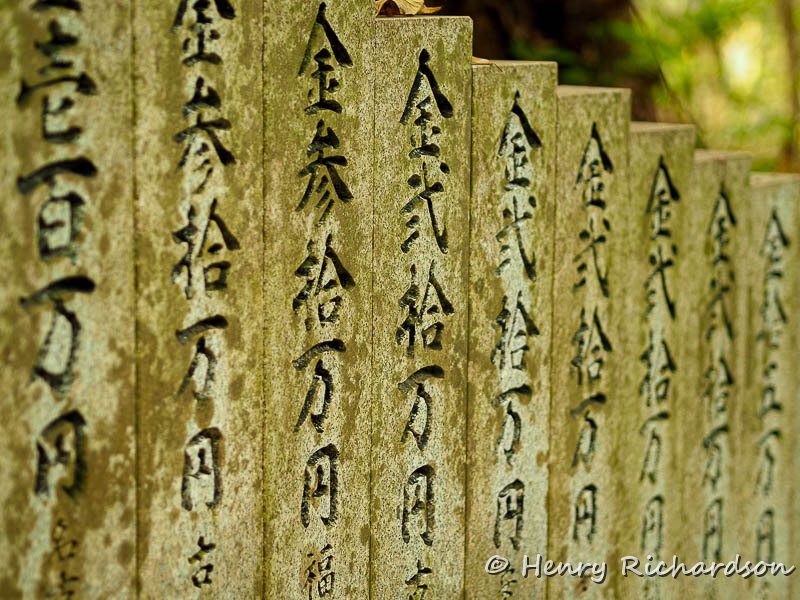 金壱百万円 名古
金参拾万円 古
金参拾万円 福
金弐拾万円
金弐拾万円
金弐拾万円
金弐拾万円
金弐拾万円
金拾五万円
© Henry Richardson